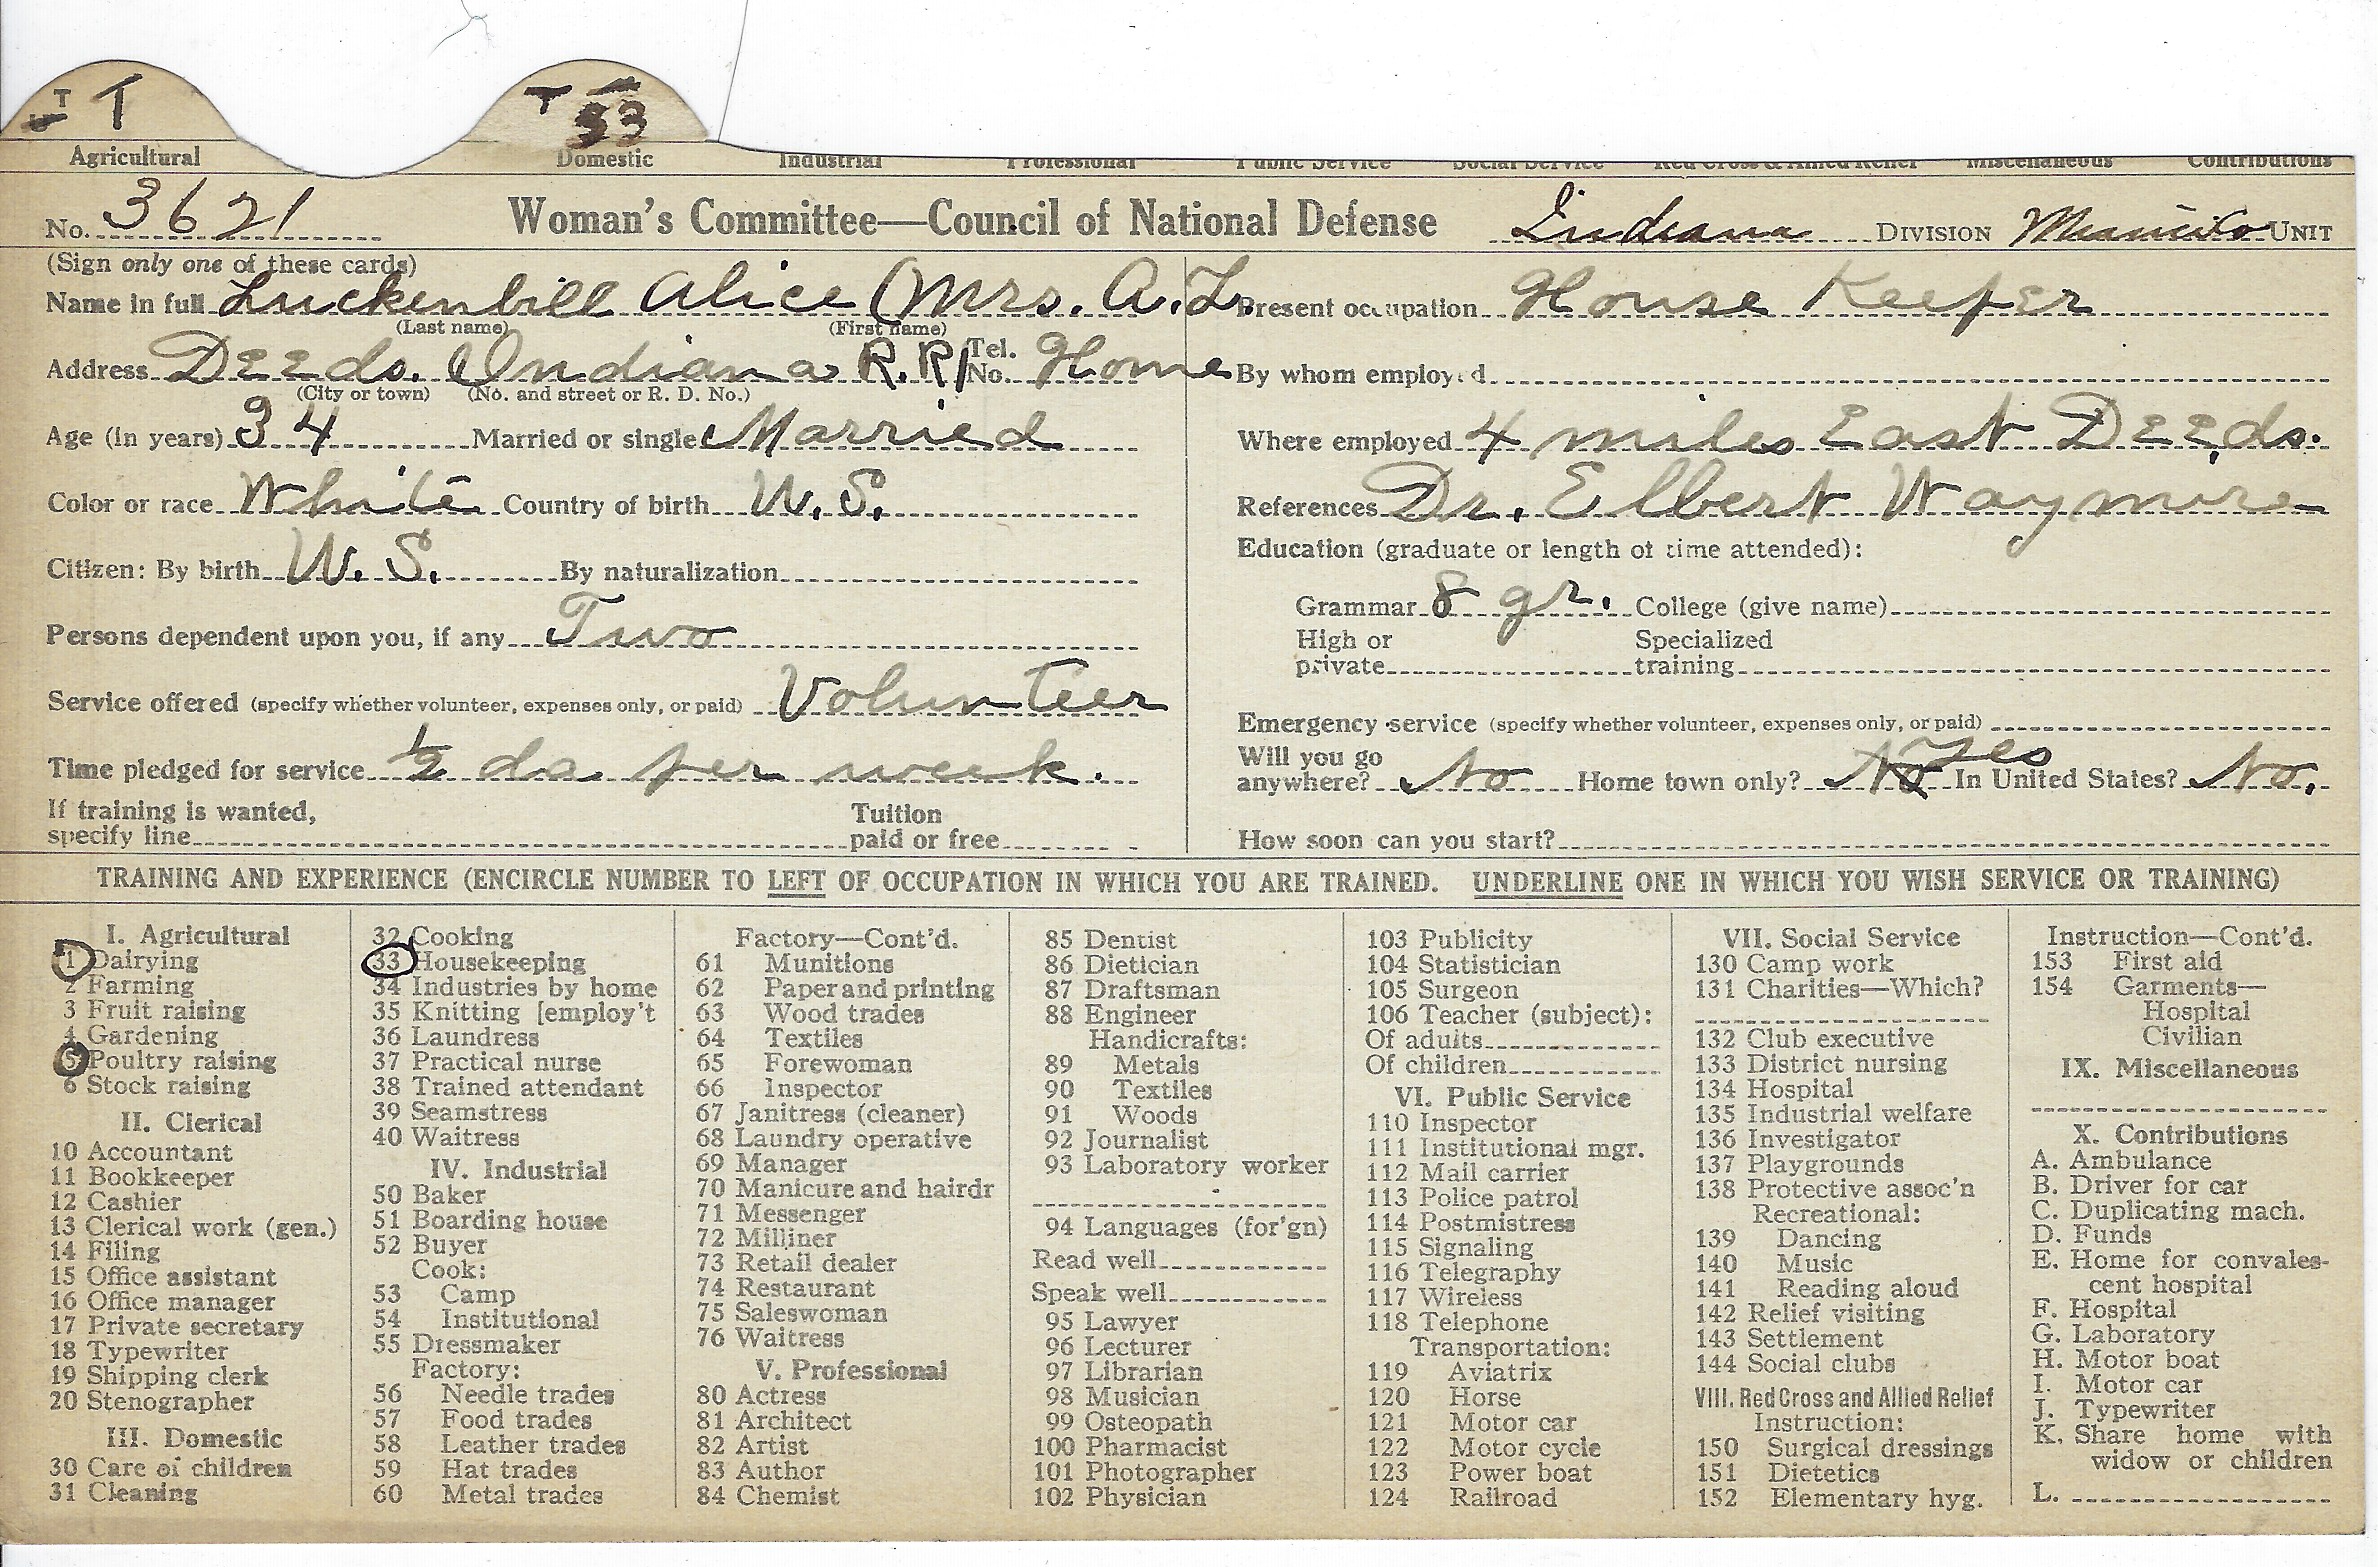 T T T
53
Agricultural Domestic Industrial Professional Public Service Social Service Red Cross & Allied Relief Miscellaneous Contributions
No. 3621 Woman's Committee—Council of National Defense Indiana DIVISION UNIT
(Sign only one of these cards)
Name in full Luckenbill Alice (Mrs. A.L.
(Last name) (First name)
Address Deeds. Indiana R.R1 Tel. No. Home
(City or town) (No. and street or R. D. No.)
Age (in years) 34 Married or single Married
Color or race White Country of birth U.S.
Citizen: By birth U.S. By naturalization
Persons dependent upon you, if any Two
Service offered (specify whether volunteer, expenses only, or paid) Volunteer
Time pledged for service 1/2 da per week.
If training is wanted, specify line Tuition paid or free
Present occupation House Keeper
By whom employed
Where employed 4 miles East Deeds.
References Dr. Elbert Waymire
Education (graduate or length of time attended):
Grammar 8 gr. College (give name)
High or private Specialized training
Emergency service (specify whether volunteer, expenses only, or paid)
Will you go anywhere? No Home town only? No Yes In United States? No.
How soon can you start?
TRAINING AND EXPERIENCE (ENCIRCLE NUMBER TO LEFT OF OCCUPATION IN WHICH YOU ARE TRAINED. UNDERLINE ONE IN WHICH YOU WISH SERVICE OR TRAINING)
I. Agricultural
1 Dairying
2 Farming
3 Fruit raising
4 Gardening
5 Poultry raising
6 Stock raising
II. Clerical
10 Accountant
11 Bookkeeper
12 Cashier
13 Clerical work (gen.)
14 Filing
15 Office assistant
16 Office manager
17 Private secretary
18 Typewriter
19 Shipping clerk
20 Stenographer
III. Domestic
30 Care of children
31 Cleaning
32 Cooking
33 Housekeeping
34 Industries by home
35 Knitting [employ't
36 Laundress
37 Practical nurse
38 Trained attendant
39 Seamstress
40 Waitress
IV. Industrial
50 Baker
51 Boarding house
52 Buyer
Cook:
53 Camp
54 Institutional
55 Dressmaker
Factory:
56 Needle trades
57 Food trades
58 Leather trades
59 Hat trades
60 Metal trades
Factory—Cont'd.
61 Munitions
62 Paper and printing
63 Wood trades
64 Textiles
65 Forewoman
66 Inspector
67 Janitress (cleaner)
68 Laundry operative
69 Manager
70 Manicure and hairdr
71 Messenger
72 Milliner
73 Retail dealer
74 Restaurant
75 Saleswoman
76 Waitress
V. Professional
80 Actress
81 Architect
82 Artist
83 Author
84 Chemist
85 Dentist
86 Dietician
87 Draftsman
88 Engineer
Handicrafts:
89 Metals
90 Textiles
91 Woods
92 Journalist
93 Laboratory worker
94 Languages (for'gn)
Read well
Speak well
95 Lawyer
96 Lecturer
97 Librarian
98 Musician
99 Osteopath
100 Pharmacist
101 Photographer
102 Physician
103 Publicity
104 Statistician
105 Surgeon
106 Teacher (subject):
Of adults
Of children
VI. Public Service
110 Inspector
111 Institutional mgr.
112 Mail carrier
113 Police patrol
114 Postmistress
115 Signaling
116 Telegraphy
117 Wireless
118 Telephone
Transportation:
119 Aviatrix
120 Horse
121 Motor car
122 Motor cycle
123 Power boat
124 Railroad
VII. Social Service
130 Camp work
131 Charities—Which?
132 Club executive
133 District nursing
134 Hospital
135 Industrial welfare
136 Investigator
137 Playgrounds
138 Protective assoc'n
Recreational:
139 Dancing
140 Music
141 Reading aloud
142 Relief visiting
143 Settlement
144 Social clubs
VIII. Red Cross and Allied Relief
Instruction:
150 Surgical dressings
151 Dietetics
152 Elementary hyg.
Instruction—Cont'd.
153 First aid
154 Garments—
Hospital
Civilian
IX. Miscellaneous
X. Contributions
A. Ambulance
B. Driver for car
C. Duplicating mach.
D. Funds
E. Home for convales-
cent hospital
F. Hospital
G. Laboratory
H. Motor boat
I. Motor car
J. Typewriter
K. Share home with
widow or children
L.